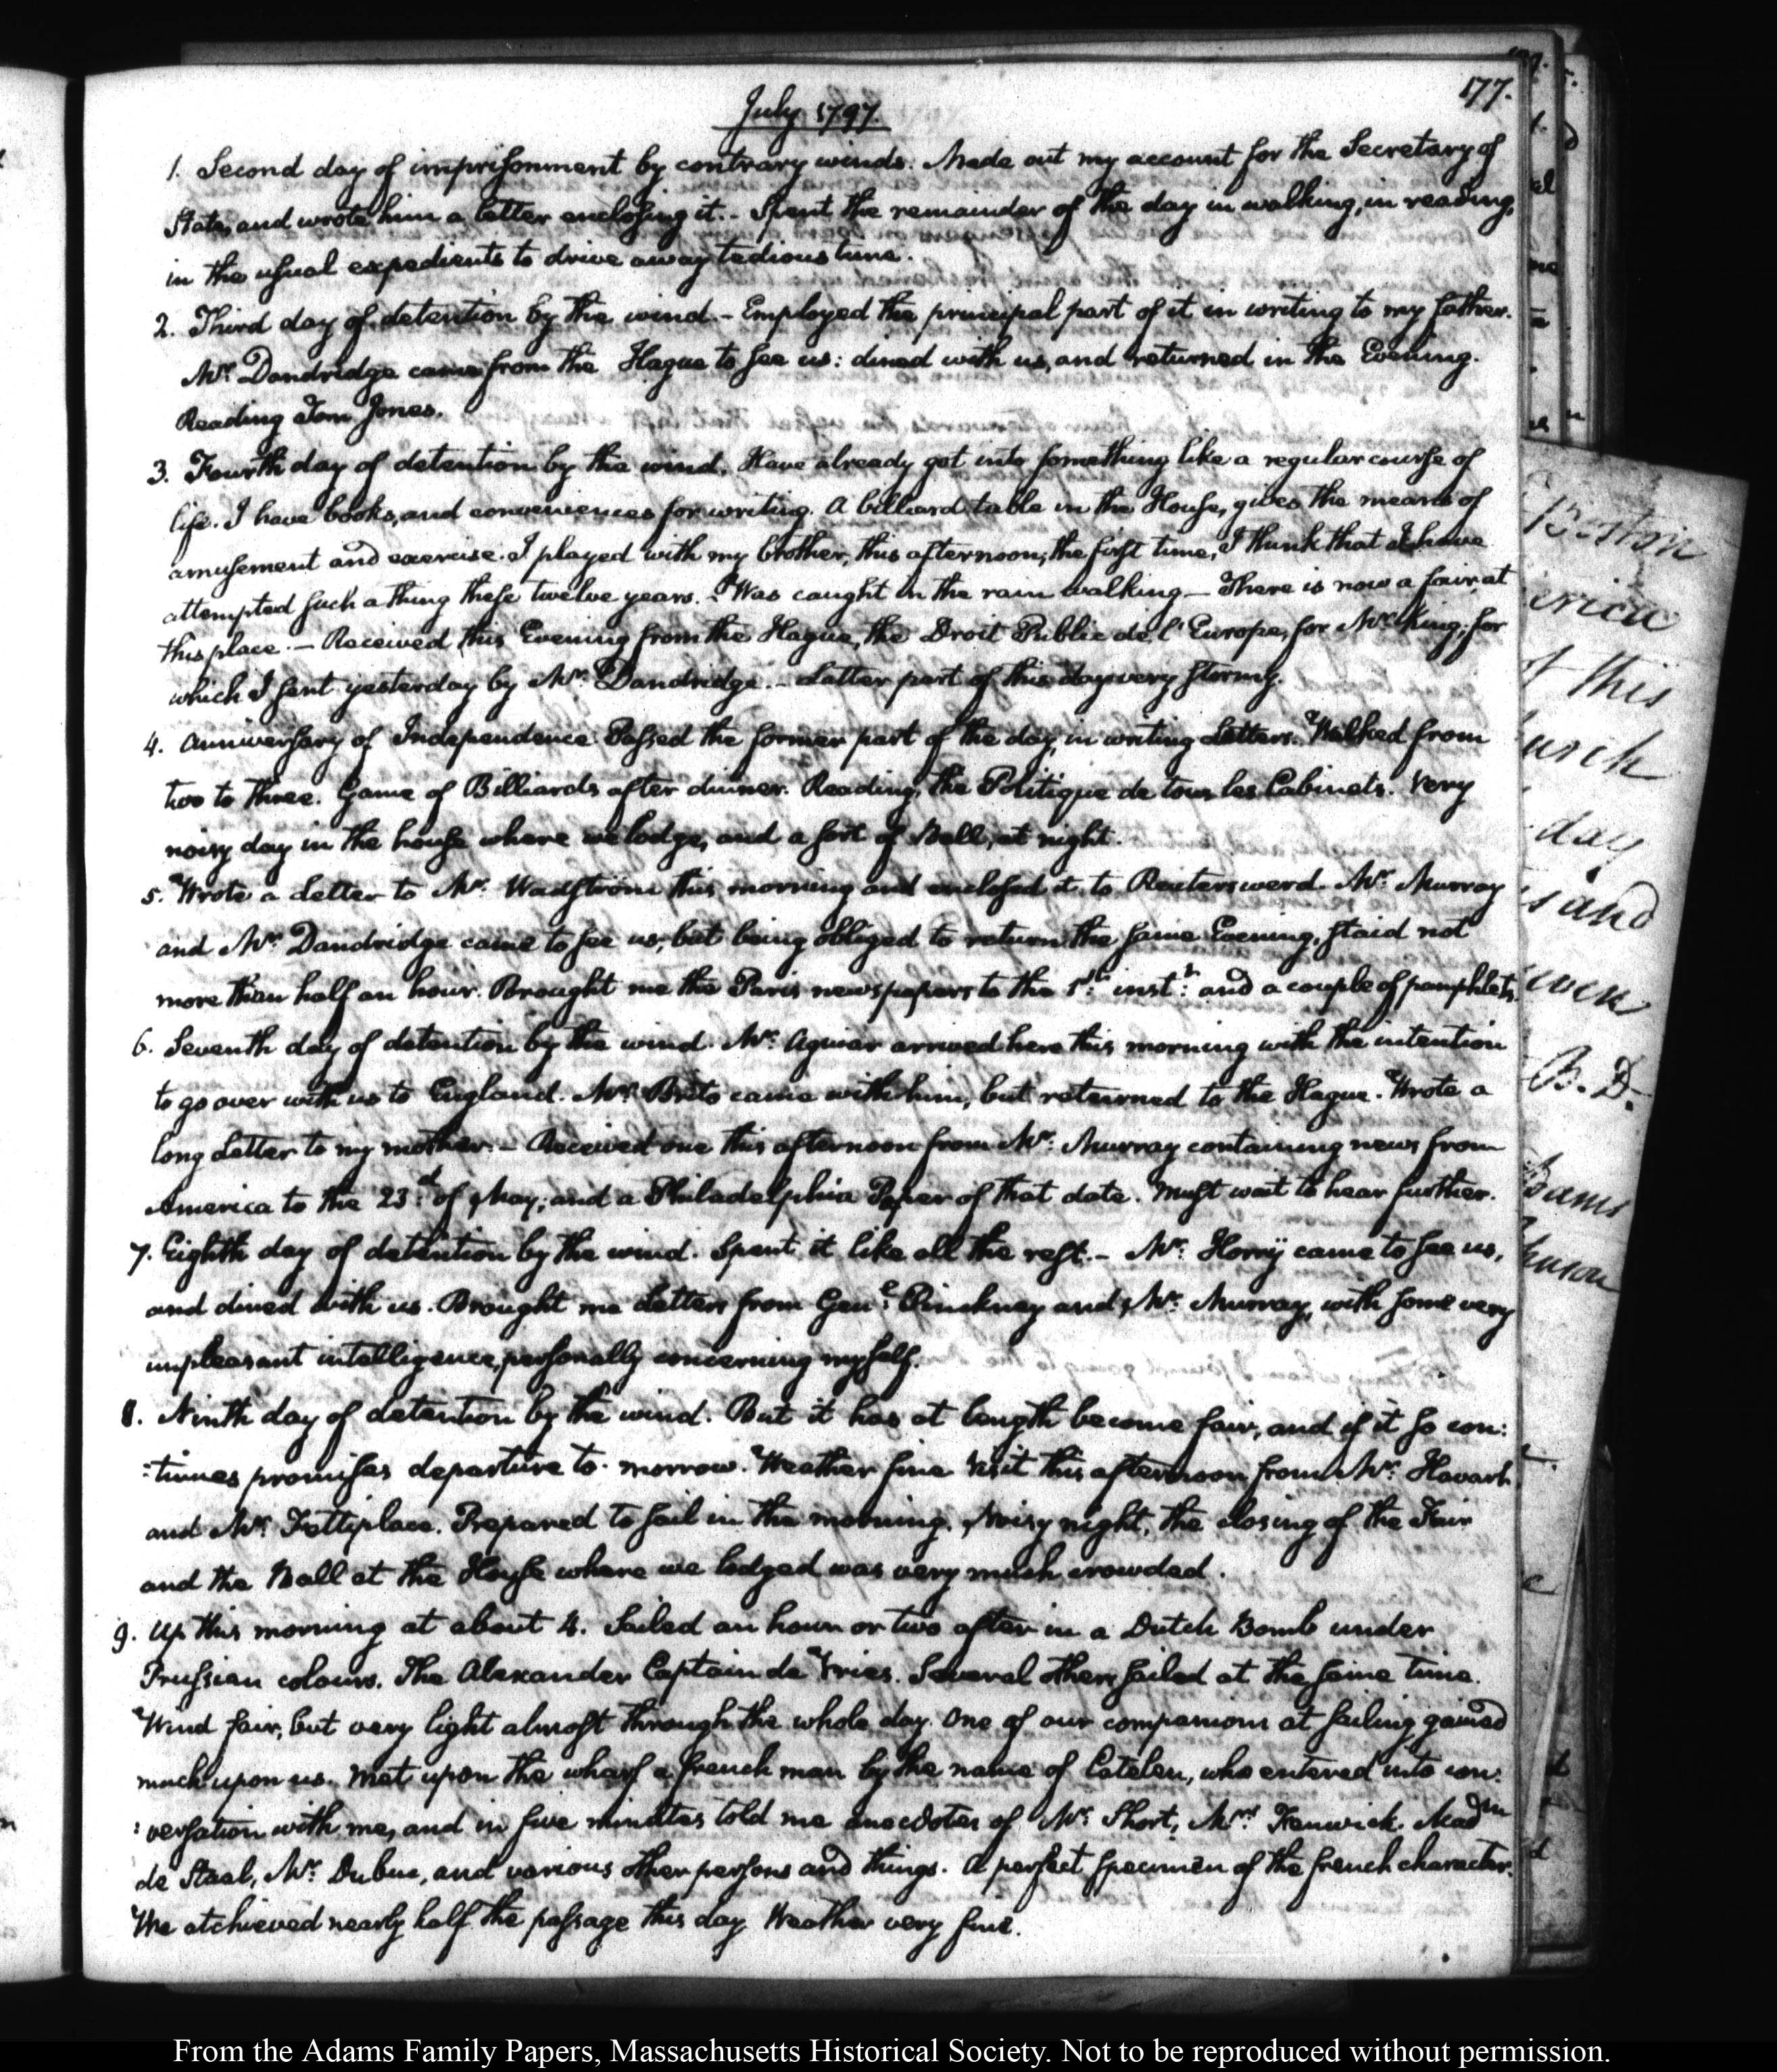 177.
July 1797.
1. Second day of imprisonment by contrary winds. Made out my account for the Secretary of
State, and wrote him a letter enclosing it. - Spent the remainder of the day in walking, in reading,
in the usual expedients to drive away tedious time.
2. Third day of detention by the wind. - Employed the principal part of it in writing to my father.
Mr. Dandridge came from the Hague to see us: dined with us, and returned in the Evening.
Reading Tom Jones.
3. Fourth day of detention by the wind. Have already got into something like a regular course of
life. I have books, and conveniences for writing. A billiard table in the House, gives the means of
amusement and exercise. I played with my brother, this afternoon; the first time, I think that I have
attempted such a thing these twelve years. - Was caught in the rain walking - There is now a fair, at
this place. - Received this Evening from the Hague, the Droit Public de l'Europe, for Mr. King; for
which I sent yesterday by Mr. Dandridge. - Latter part of this day very stormy.
4. Anniversary of Independence. Passed the former part of the day, in writing Letters. Walked from
two to three. Game of Billiards after dinner. Reading, the Politique de tous les Cabinets. Very
noisy day in the house where we lodge, and a sort of Ball, at night.
5. Wrote a Letter to Mr. Wadström this morning and enclosed it to Reuterswerd. Mr. Murray
and Mr. Dandridge came to see us, but being obliged to return the same Evening, staid not
more than half an hour. Brought me the Paris newspapers to the 1st. instt. and a couple of pamphlets.
6. Seventh day of detention by the wind. Mr. Aguiar arrived here this morning with the intention
to go over with us to England. Mr. Brito came with him, but returned to the Hague. Wrote a
long Letter to my mother. - Received one this afternoon from Mr. Murray containing news from
America to the 23d. of May; and a Philadelphia Paper of that date. Must wait to hear further.
7. Eighth day of detention by the wind. Spent it like all the rest. - Mr. Horrÿ came to see us,
and dined with us. Brought me Letters from Genl. Pinckney and Mr. Murray, with some very
unpleasant intelligence, personally concerning myself.
8. Ninth day of detention by the wind. But it has at length become fair, and if it so con:
:tinues promises departure to-morrow. Weather fine. Visit this afternoon from Mr.
and Mr. Fettiplace. Prepared to sail in the morning. Noisy night, the closing of the Fair
and the Ball at the House where we lodged was very much crowded.
9. Up this morning at about 4. Sailed an hour or two after in a Dutch Bomb under
Prussian colours. The Alexander Captain de Vries. Several others sailed at the same time.
Wind fair, but very light almost through the whole day. One of our companions at sailing gained
much upon us. Met upon the wharf a french man by the name of Catelan, who entered into con:
:versation with me, and in five minutes told me anecdotes of Mr. Short, Mr. Fenwick, Madm
de Stael, Mr. Dubuc, and various other persons and things. A perfect specimen of the french character.
We atchieved nearly half the passage this day. Weather very fine.
Boston
this
day
and
B. D.
From the Adams Family Papers, Massachusetts Historical Society. Not to be reproduced without permission.